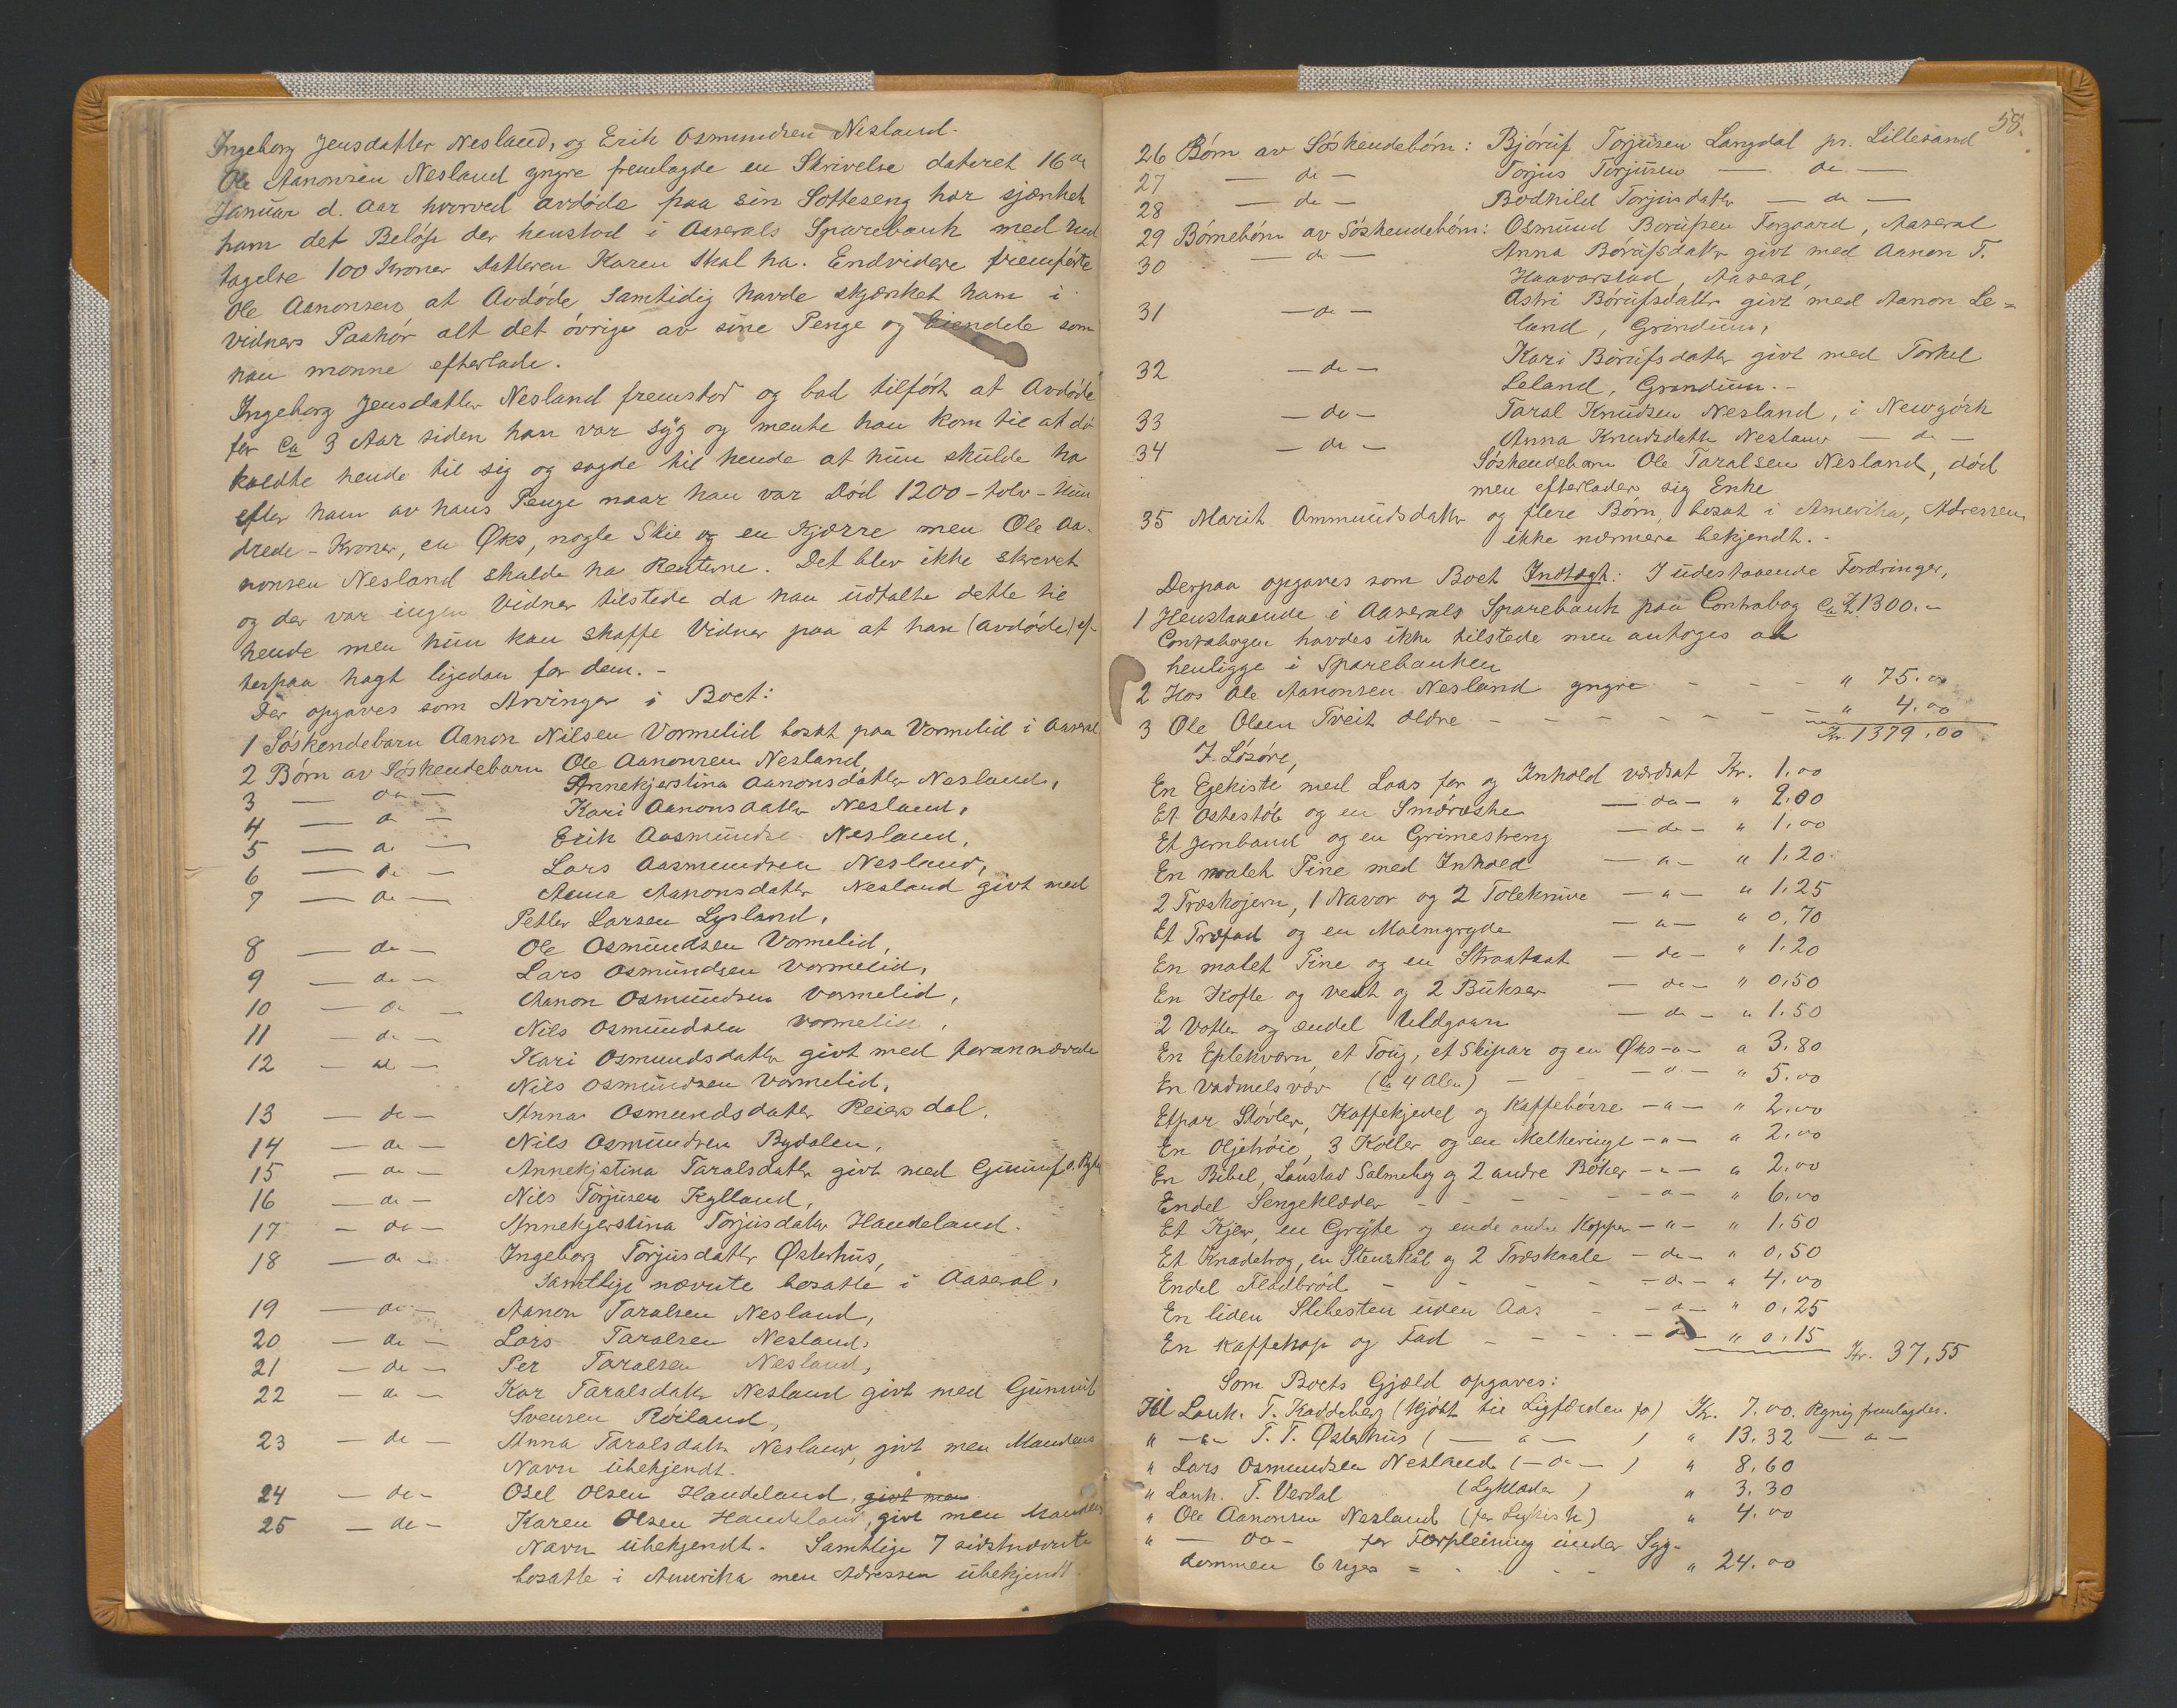 Ingeborg Jensdatter Nesland, og Erik Osmundsen Nesland.
Ole Aanonsen Nesland yngre fremlagde en Skrivelse dateret 16de
Januar d. Aar hvorved avdøde paa sin Sotteseng har sjænket
ham det Beløp der henstod i Aaserals Sparebank med und
tagelse 100 Kroner Datteren Karen skal ha. Endvidere fremførte
Ole Aanonsen at Avdøde samtidig havde skjænket ham i
vidners Paahør alt det øvrige av sine Penge og Eiendele som
han monne efterlade.
Ingeborg Jensdatter Nesland fremstod og bad tilført at Avdøde
for ca 3 Aar siden han var syg og mente han kom til at dø
kaldte hende til sig og sagde til hende at hun skulde ha
efter ham av hans Penge naar han var Død 1200 - tolv - hun
drede - Kroner, en Øks, nogle Skie og en Kjærre men Ole Aa-
nonsen Nesland skulde ha Renterne. Det blev ikke skrevet
og der var ingen Vidner tilstede da han udtalte dette til
hende men hun kan skaffe Vidner paa at han (avdøde) ef-
terpaa sagt ligedan for dem. -
Der opgaves som Arvinger i Boet:
1 Søskendebarn Aanon Nilsen Vormelid bosat paa Vormelid i Aaseral
2 Børn av Søskendebarn Ole Aanonsen Nesland,
3 — do — Annekjerstina Aanonsdatter Nesland,
4 — do — Kari Aanonsdatter Nesland,
5 — do — Erik Aasmundse Nesland,
6 — do — Lars Aasmundsen Nesland,
7 — do — Anna Aanonsdatter Nesland givt med
Petter Larsen Lysland,
8 — do — Ole Osmundsen Vormelid,
9 — do — Lars Osmundsen Vormelid,
10 — do — Aanon Osmundsen Vormelid,
11 — do — Nils Osmundsen Vormelid,
12 — do — Kari Osmundsdatter givt med forannævnte
Nils Osmundsen Vormelid,
13 — do — Anna Osmundsdatter Reiersdal,
14 — do — Nils Osmundsen Bydalen,
15 — do — Annekjstina Taralsdatter givt med Gunuf O.
16 — do — Nils Torjusen Kylland,
17 — do — Annekjerstina Torjusdatter Haudeland.
18 — do — Ingeborg Torjusdatter Østerhus,
Samtlige nævnte bosatte i Aaseral,
19 — do — Aanon Taralsen Nesland,
20 — do — Lars Taralsen Nesland,
21 — do — Per Taralsen Nesland,
22 — do — Kar Taralsdatter Nesland givt med Gunnuf
Svensen Røiland,
23 — do — Anna Taralsdatter Nesland, givt men Mandens
Navn ubekjendt.
24 — do — Osel Olsen Haudeland, givt men
25 — do — Karen Olsen Haudeland, givt men Mandens
Navn ubekjendt. Samtlige 7 sidstnævnte
bosatte i Amerika men Adressen ubekjendt.
58.
26 Børn av Søskendebørn: Bjøruf Torjusen Langdal pr. Lillesand
27 — do — Torjus Torjusen — do —
28 — do — Bodhild Torjusdatter — do —
29 Børnebørn av Søskendebørn: Osmund Børufsen Forgaard, Aaseral
30 — do — Anna Børufsdatter givt med Aanon T.
Haavarstad, Aaseral,
31 — do — Astri Børufsdattr givt med Aanon Le=
land, Grindum,
32 — do — Kari Børufsdatter givt med Torkel
Leland, Grindum. -
33 — do — Taral Knudsen Nesland, i Newyørk
34 — do — Anna Knudsdatter Nesland — do —
Søskendebarn Ole Taralsen Nesland, død
men efterlader sig Enke
35 Marit Ommundsdatter og flere Børn, bosat i Amerika, Adressen
ikke nærmere bekjendt. -
Derpaa opgaves som Boet Indtægt: I udestaaende Fordringer,
1 Henstaaende i Aaserals Sparebank paa Contrabog ca Kr. 1300. -
Contrabogen havdes ikke tilstede men antoges at
henligge i Sparebanken
2 Hos Ole Aanonsen Nesland yngre - - - " 75.00
3 Ole Olsen Tveit ældre - - - - - - " 4.00
Kr. 1379.00
I Løsøre,
En Egekiste med Laas for og Inhold værdsat Kr. 1.00
Et Ostestøb og en Smøræske — do — " 2.00
Et Jernband og en Grimestreng — do — " 1.00
En malet Tine med Inhold — " — " 1.20
2 Træskojern, 1 Navar og 2 Toleknive — " — " 1.25
Et Træfad og en Malmgryde — " — " 0.70
En malet Tine og en Straahat — do — " 1.20
En Kofte og Vest og 2 Bukser — do — " 0.50
2 Votter og endel Uldgarn — do — " 1.50
En Eplekværn, et Toug, et Skipar og en Øks — " — " 3.80
En Vadmelsvæv (ca 4 Alen) - - — " — " 5.00
Etpar Støvler, Kaffekjedel og Kaffebøsse — " — " 2.00
En Oljetrøie, 3 Koller og en Melkeringe — " — " 2.00
En Bibel, Lanstad Salmebog og 2 andre Bøker — " — " 2.00
Endel Sengeklæder - - - - — " — " 6.00
Et Kjer, en Gryte og ende andre Kopper — " — " 1.50
Et Knadetrog, en Stenskål og 2 Træskaale — do — " 0.50
Endel Fladbrød - - - — do — " 4.00
En liden Slibesten uden Aas - — " — " 0.25
En Kaffekop og Fad - - - - — " — " 0.15
Kr. 37,55
Som Boets Gjæld opgaves:
Til Lanh. T. Kaddeberg (Kjøbt til Ligfærden for) Kr. 7.00. Regnig fremlagdes.
" — " — T. T. Østerhus ( — " — ) " 13.32 — " —
" Lars Osmundsen Nesland ( — do — ) " 8.60
" Lanh. T. Verdal (Ligklæder) " 3.30
" Ole Aanonsen Nesland (for Ligkiste) " 4.00
" — do — for Forpleining under Syg-
dommen 6 uger = - - - " 24.00